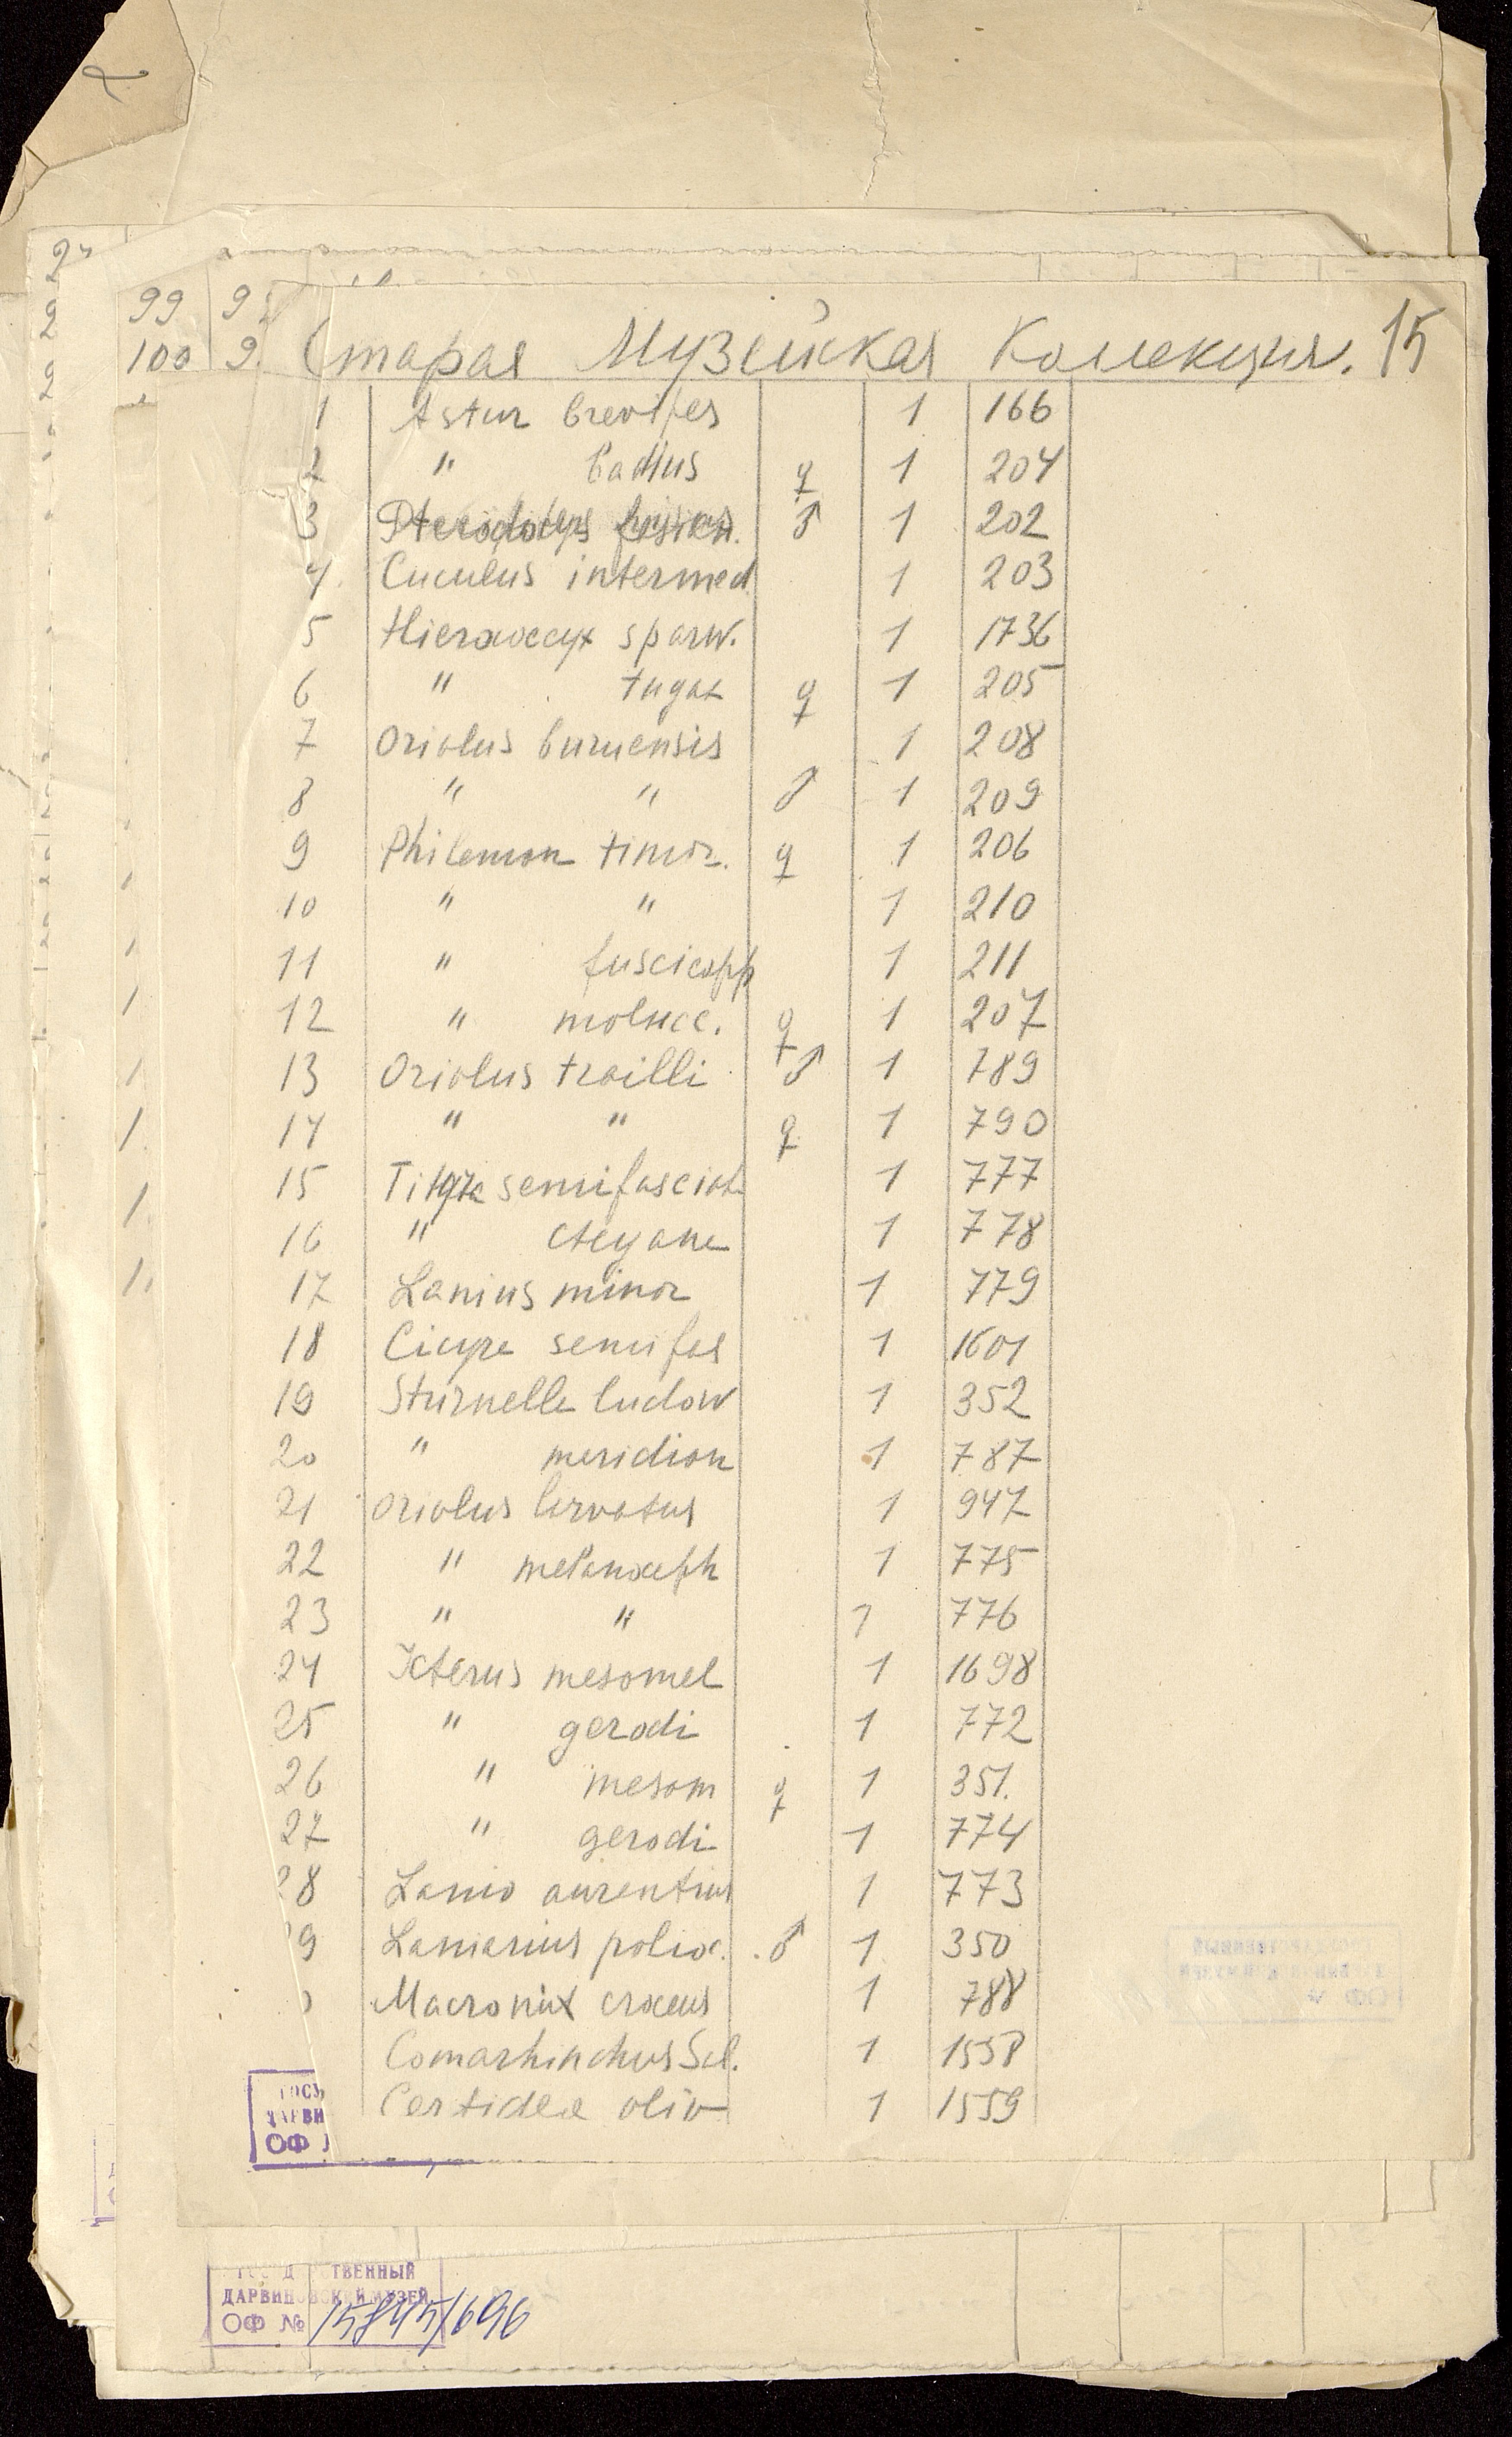 99 9
100 9
Старая Музейская Коллекция. 15
1 Astur brevipes 1 166
2 " badius ♀ 1 204
3 ♂ 1 202
4 Cuculus intermed 1 203
5 Hieraococyx sparw. 1 1736
6 " fugax ♀ 1 205
7 Oriolus buruensis 1 208
8 " " ♂ 1 209
9 Philemon timor. ♀ 1 206
10 " " 1 210
11 " fuscicapp 1 211
12 " molucc. ♀ 1 207
13 Oriolus trailli ♂ 1 789
14 " " ♀ 1 790
15 Tityra semifasciat. 1 777
16 " 1 778
17 Lanius minor 1 779
18 semifas 1 1601
19 Sturnella ludow 1 352
20 " meridion 1 787
21 Oriolus larvatus 1 947
22 " melanoceph 1 775
23 " " 1 776
24 Icterus mesomel 1 1698
25 " gerodi 1 772
26 " mesom ♀ 1 351.
27 " gerodi 1 774
28 Lanio aurentius 1 773
9 Laniarius polioc. ♂ 1 350
Macronix croceus 1 788
Comarhinchus Scl. 1 1558
Certidea oliv 1 1559
ГОСУ
ДАРВИ
ОФ
ГОС Д ТВЕННЫЙ
ДАРВИНОВСКИЙ МУЗЕЙ
ОФ № 15845/696